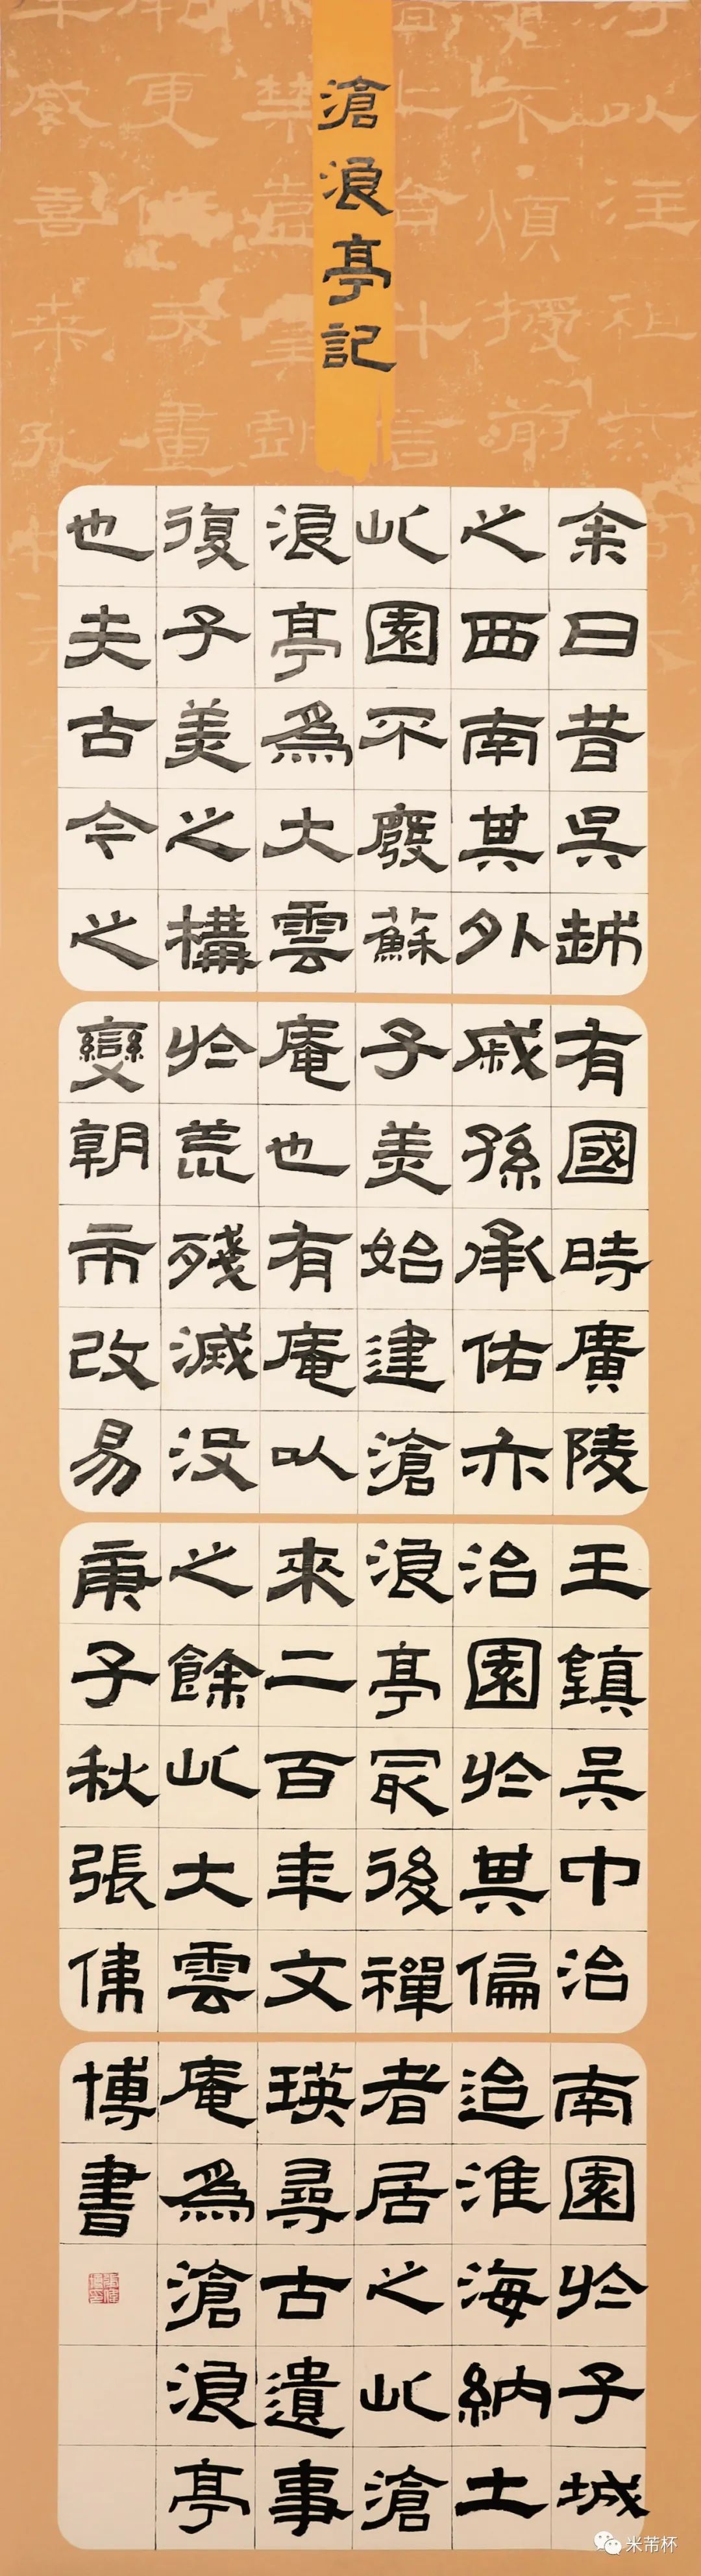 滄浪亭記
余曰昔吳越有國時廣陵王鎮吳中治南園於子城
之西南其外戚孫承佑亦治園於其偏迨淮海納土
此園不廢蘇子美始建滄浪亭最後禪者居之此滄
浪亭爲大雲庵也有庵以來二百年文瑛尋古遺事
復子美之構於荒殘滅没之餘此大雲庵爲滄浪亭
也夫古今之變朝市改易庚子秋張博書
米芾杯